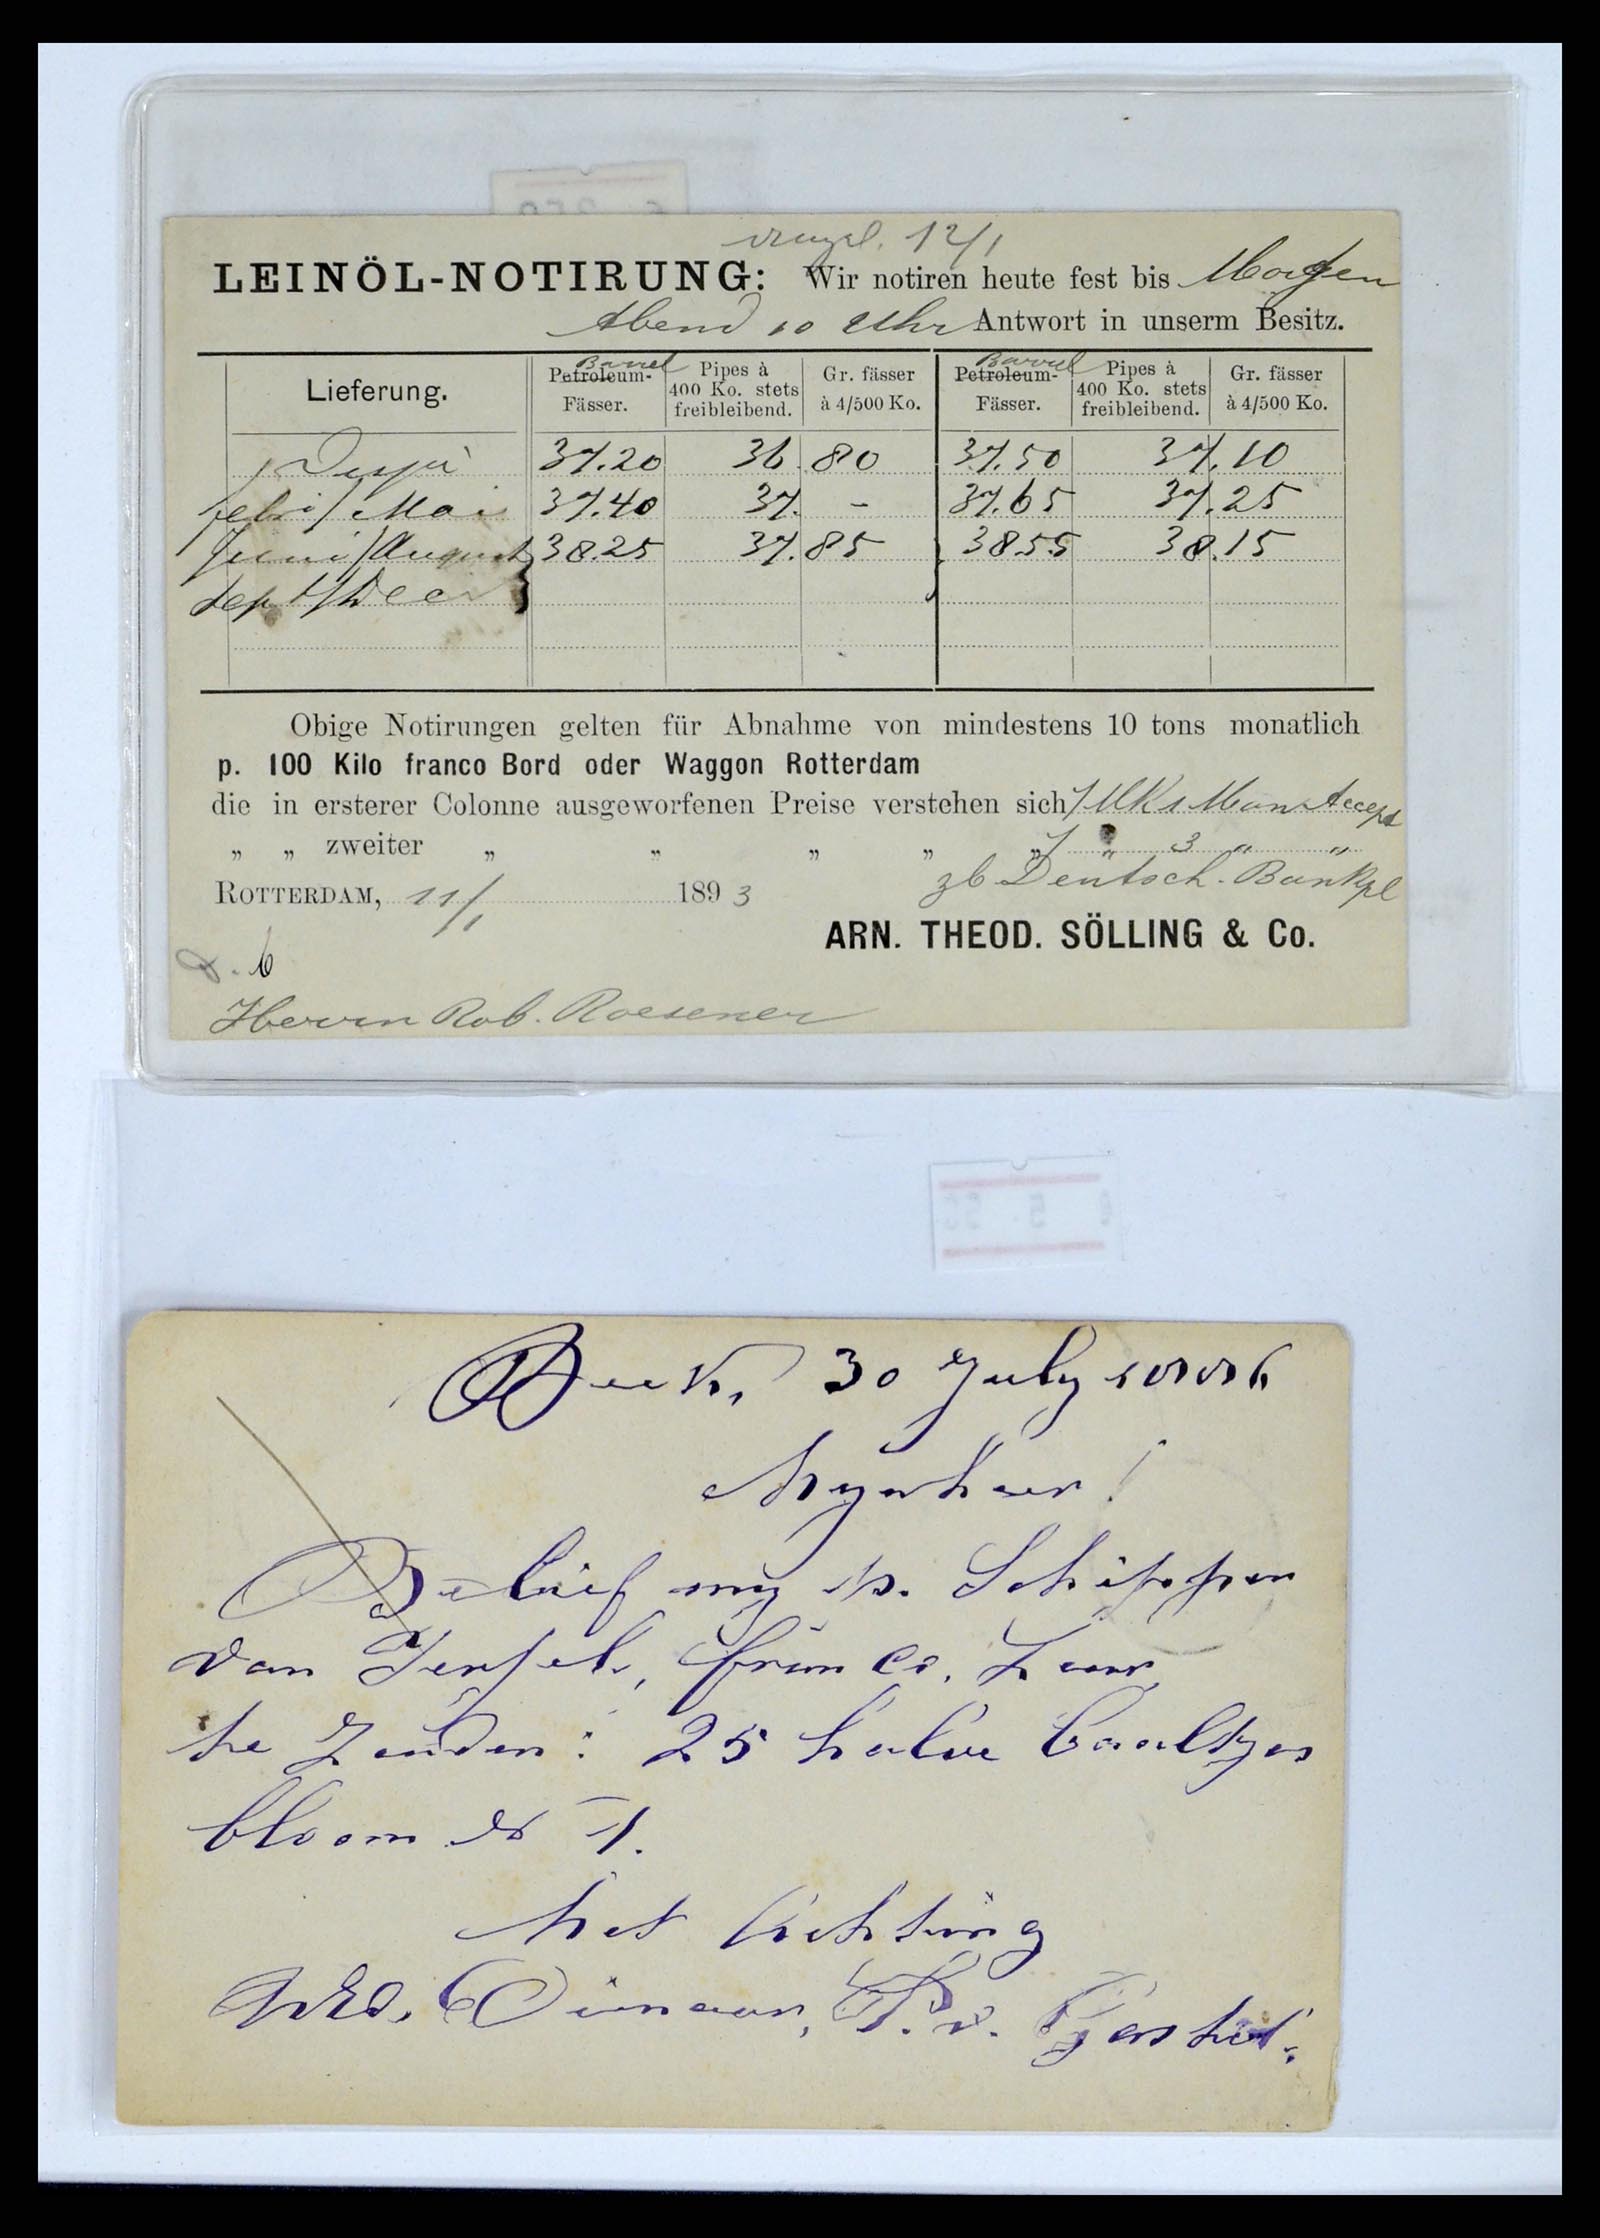 12/1
LEINÖL-NOTIRUNG: Wir notiren heute fest bis Morgen
Abend 10 Uhr Antwort in unserm Besitz.
Lieferung. Barrel Petroleum-Fässer. Pipes à 400 Ko. stets freibleibend. Gr. fässer à 4/500 Ko. Barrel Petroleum-Fässer. Pipes à 400 Ko. stets freibleibend. Gr. fässer à 4/500 Ko.
37.20 36.80 37.50 37.10
/ Mai 37.40 37. - 37.65 37.25
Juni/August 38.25 37.85 38.55 38.15
Sept/Dec
Obige Notirungen gelten für Abnahme von mindestens 10 tons monatlich
p. 100 Kilo franco Bord oder Waggon Rotterdam
die in ersterer Colonne ausgeworfenen Preise verstehen sich Accept
„ „ zweiter „ „ „ „ „ „ 3 „ „
ROTTERDAM, 11/1 1893 Deutsch. Bankpl
ARN. THEOD. SÖLLING & Co.
6
Herrn Rob. Roesener
30 July 1886
Mynheer!
Belief my p. Schipper
van franco,
te zenden: 25 halve baaltjes
bloem No 1.
Met Achting
UEd. Dienaar,